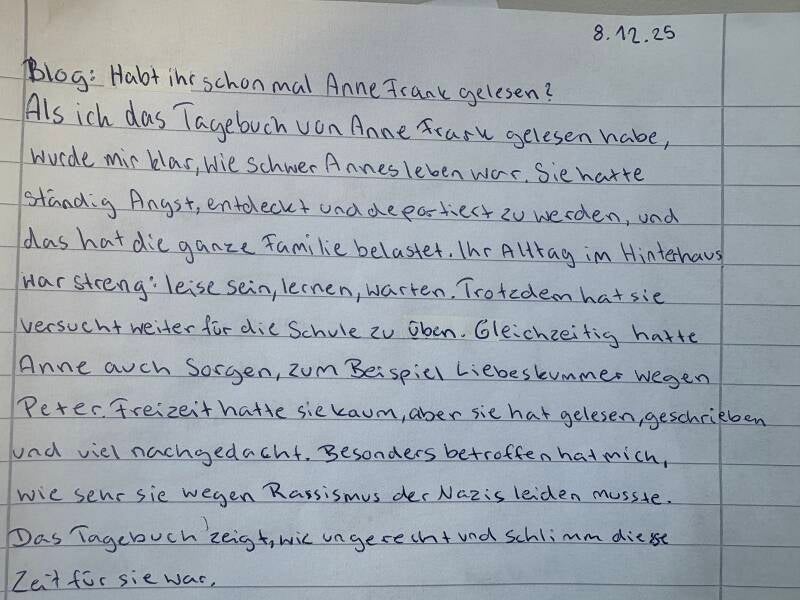 8.12.25
Blog: Habt ihr schon mal Anne Frank gelesen?
Als ich das Tagebuch von Anne Frank gelesen habe,
wurde mir klar, wie schwer Annes leben war. Sie hatte
ständig Angst, entdeckt und departiert zu werden, und
das hat die ganze Familie belastet. Ihr Alltag im Hinterhaus
war streng: leise sein, lernen, warten. Trotzdem hat sie
versucht weiter für die Schule zu üben. Gleichzeitig hatte
Anne auch Sorgen, zum Beispiel Liebeskummer wegen
Peter. Freizeit hatte sie kaum, aber sie hat gelesen, geschrieben
und viel nachgedacht. Besonders betroffen hat mich,
wie sehr sie wegen Rassismus der Nazis leiden musste.
Das Tagebuch zeigt, wie ungerecht und schlimm diese
Zeit für sie war.